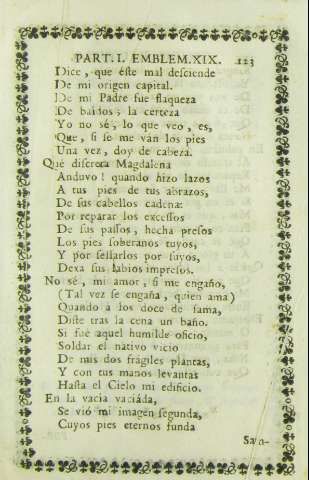 PART. I. EMBLEM. XIX. 123
Dice, que éste mal desciende
De mi origen capital.
De mi Padre fue flaqueza
De baidos; la certeza
Yo no sé, lo que veo, es,
Que, si se me ván los pies
Una vez, doy de cabeza.
Qué discreta Magdalena
Anduvo! quando hizo lazos
A tus pies de tus abrazos,
De sus cabellos cadena:
Por reparar los excessos
De sus passos, hecha presos
Los pies soberanos tuyos,
Y por sellarlos por suyos,
Dexa sus labios impresos.
No sé, mi amor, si me engaño,
(Tal vez se engaña, quien ama)
Quando à los doce de fama,
Diste tras la cena un baño.
Si fue aquel humilde oficio,
Soldar el nativo vicio
De mis dos fragiles plantas,
Y con tus manos levantas
Hasta el Cielo mi edificio.
En la vacia vaciáda,
Se vió mi imagen segunda,
Cuyos pies eternos funda